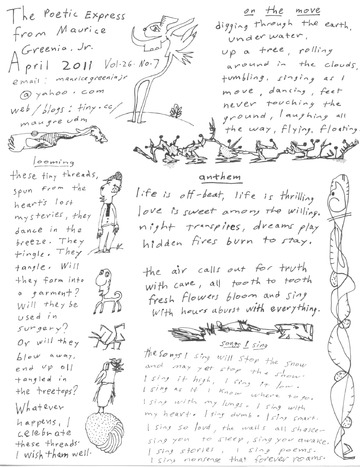 The Poetic Express
from Maurice
Greenia, Jr.
April 2011 Vol. 26 · No. 7
email: mauricegreeniajr
@yahoo.com
web/blogs: tiny.cc/
maugre udm
on the move
digging through the earth,
underwater,
up a tree, rolling
around in the clouds,
tumbling, singing as I
move, dancing, feet
never touching the
ground, laughing all
the way, flying, floating.
looming
these tiny threads,
spun from the
heart's lost
mysteries, they
dance in the
breeze. They
tingle. They
tangle. Will
they form into
a garment?
Will they be
used in
surgery?
Or will they
blow away,
end up all
tangled in
the treetops?
Whatever
happens, I
celebrate
these threads.
I wish them well.
anthem
life is off-beat, life is thrilling
love is sweet among the willing.
night transpires, dreams play
hidden fires burn to stay.
the air calls out for truth
with care, all tooth to tooth
fresh flowers bloom and sing
with hours aburst with everything.
songs I sing
the songs I sing will stop the snow
and may yet stop the show
I sing it high, I sing it low.
I sing as if I know where to go.
I sing with my lungs. I sing with
my heart. I sing dumb & I sing smart.
I sing so loud, the walls all shake
sing you to sleep, sing you awake.
I sing stories, I sing poems.
I sing nonsense that forever roams.